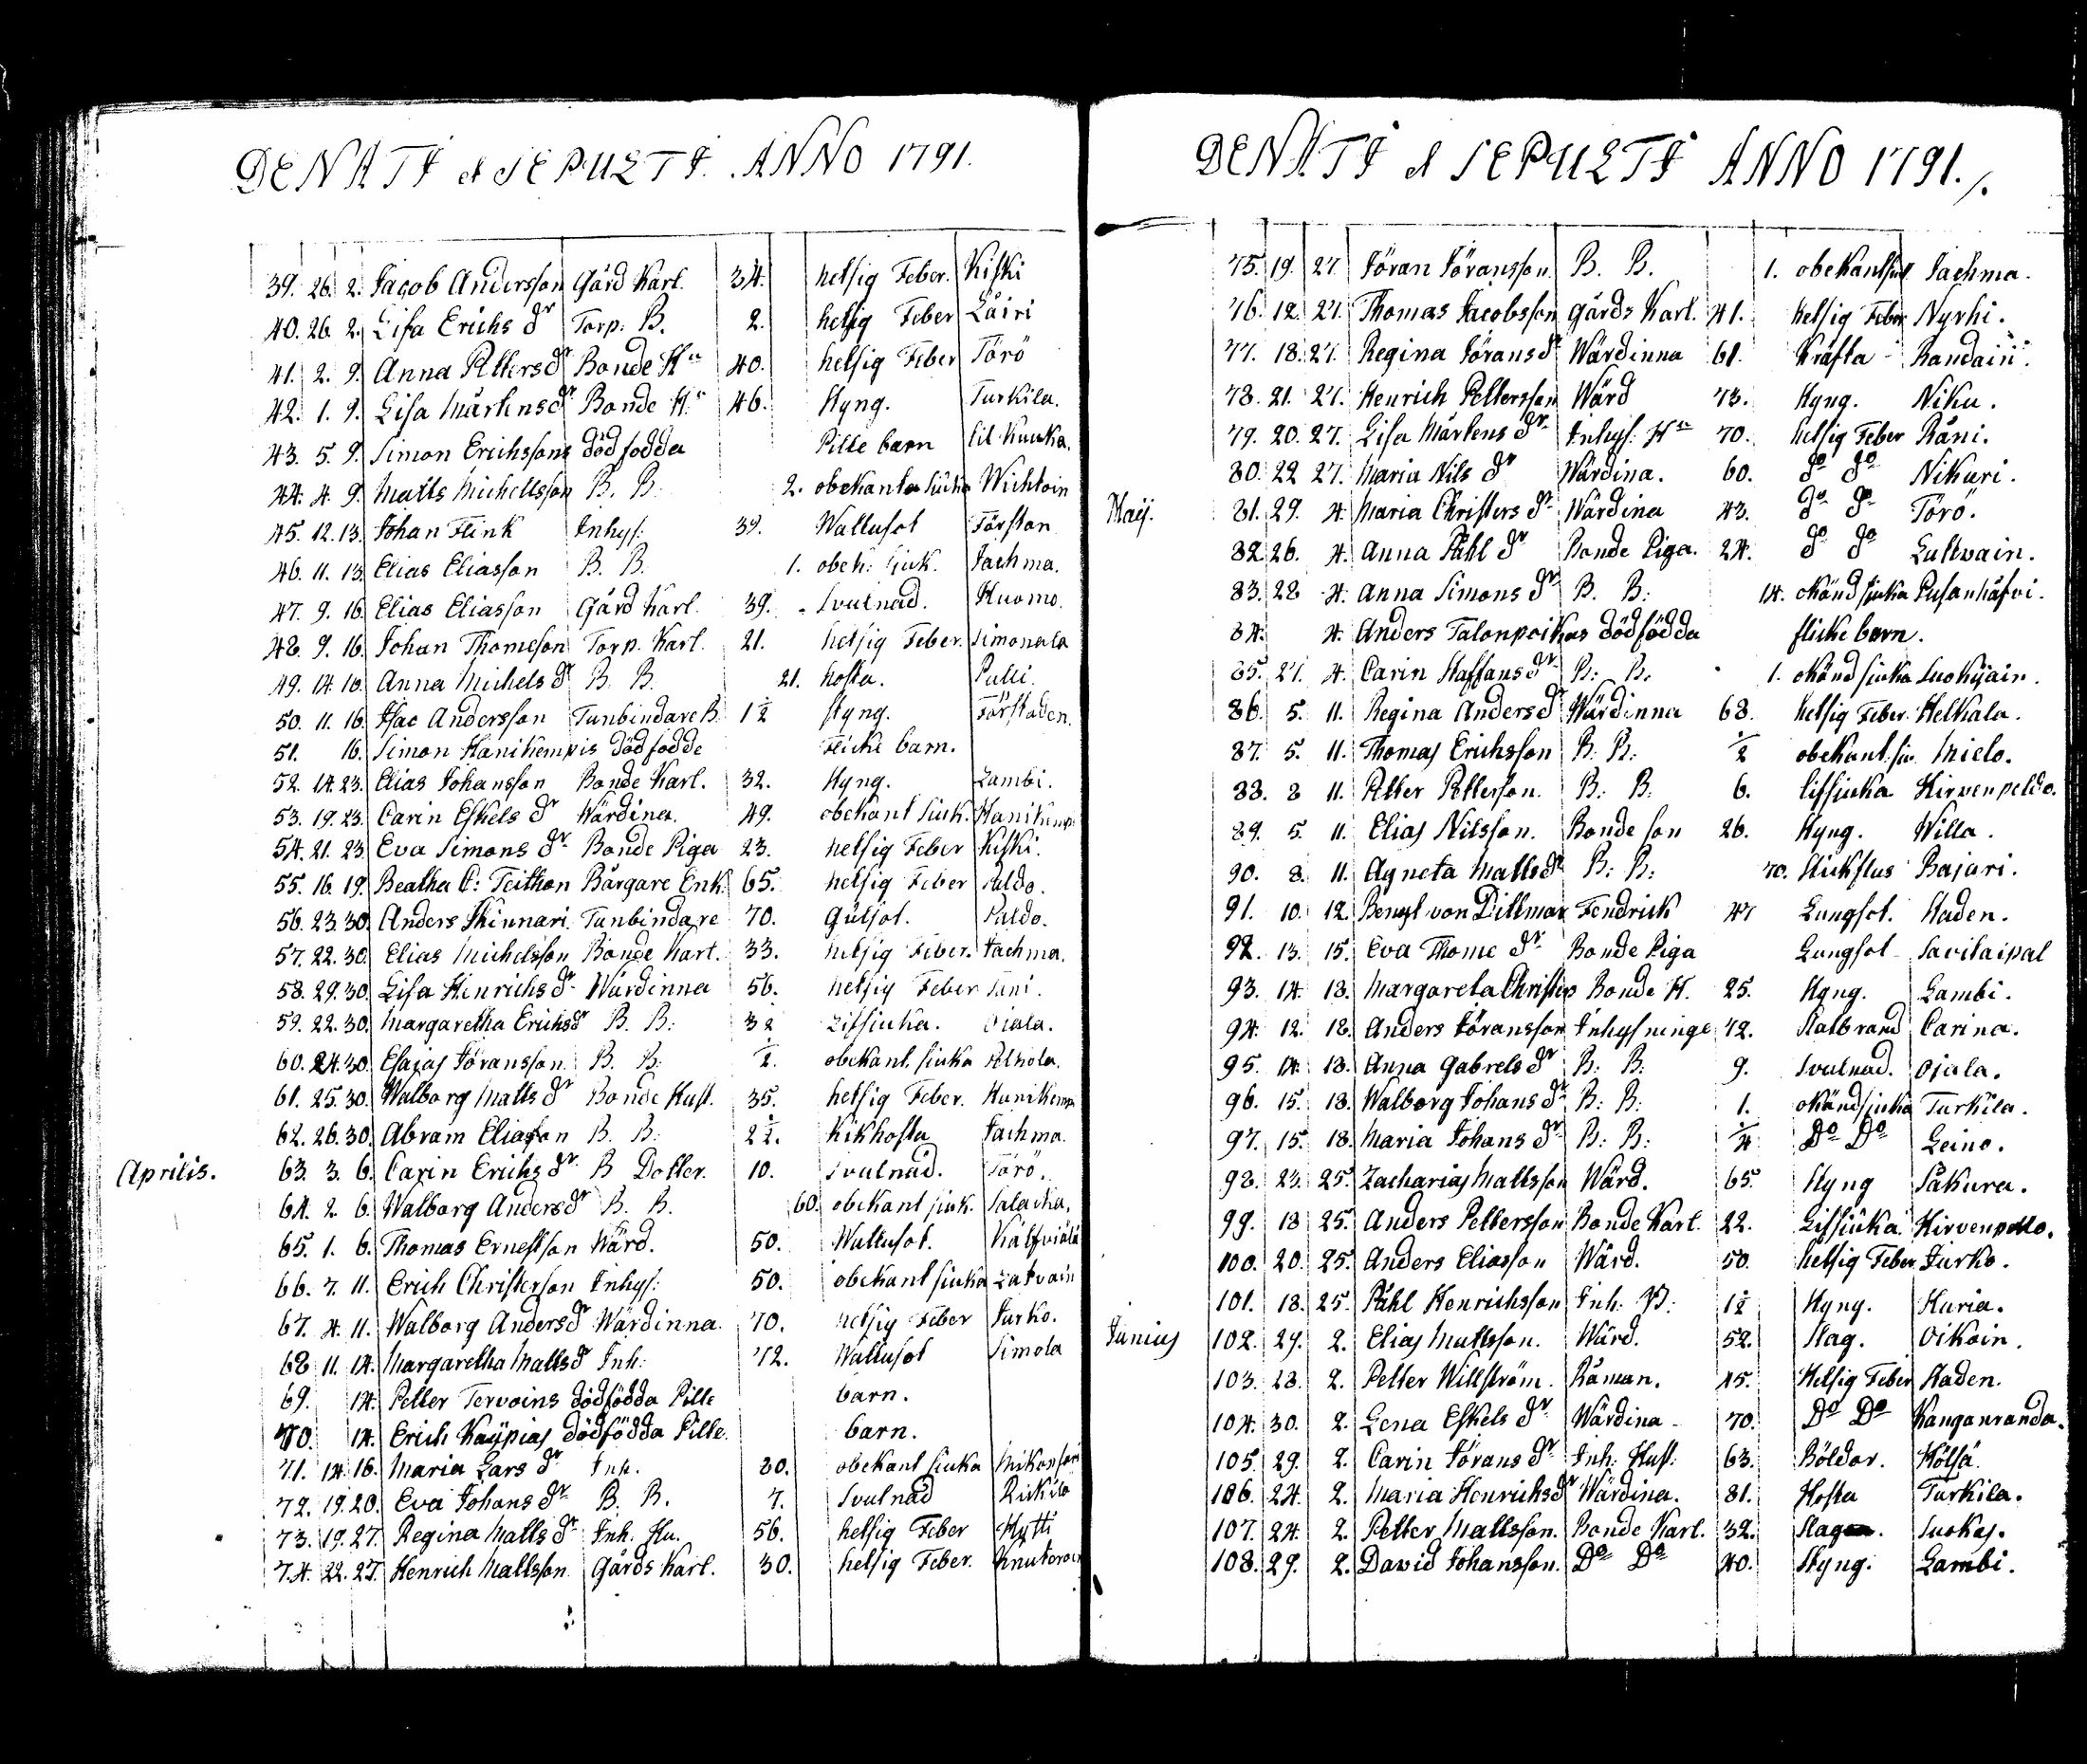 DENATI et SEPULTI ANNO 1791.
39. 26. 2. Jacob Andersson Gård Karl. 34. hetsig Feber. Kiski
40. 26. 2. Lisa Erichs dr Torp. B. 2. hetsig Feber Läiri
41. 2. 9. Anna Petters dr Bonde H 40. hetsig Feber Törö
42. 1. 9. Lisa Mårtens dr Bonde H. 46. Styng. Turkila.
43. 5. 9. Simon Erichssons död fodda Pilte barn
44. 4. 9. Matts Michellsson B. B. 2. obekanta siuka Wichtoin
45. 12. 13. Johan Flink Inhys: 39. Wattusot Förstan
46. 11. 13. Elias Eliasson B. B. 1. obek: siuk. Jachma.
47. 9. 16. Elias Eliasson Gård Karl. 39. Svulnad. Huomo.
48. 9. 16. Johan Thomeson Torp. Karl. 21. hetsig Feber. Simonala
49. 14. 16. Anna Michels dr B. B. 21. hosta. Pulli.
50. 11. 16. Isac Andersson Tunbindare B. 1½ styng. Förstaden.
51. 16. Simon Hanikempis död fodde Flicke barn.
52. 14. 23. Elias Johansson Bonde Karl. 32. Styng. Lambi.
53. 19. 23. Carin Eskels dr Wärdina. 49. obekant siuk.
54. 21. 23. Eva Simons dr Bonde Piga 23. hetsig Feber Kiski.
55. 16. 19. Beatha C: Teithon Bårgare Enk. 65. hetsig Feber Paldo.
56. 23. 30. Anders Skinnari Tunbindare 70. Gulsot. Paldo.
57. 22. 30. Elias Michelsson Bonde Karl. 33. hetsig Feber. Jachma.
58. 29. 30. Lisa Hinrichs dr Wärdinna 56. hetsig Feber Juni.
59. 22. 30. Margaretha Erichs dr B. B: 3½ Lifsiuka. Oiala.
60. 24. 30. Esaias Jöransson B. B: ½. obekant. siuka
61. 25. 30. Walborg Matts dr Bonde Hust. 35. hetsig Feber.
62. 26. 30. Abram Eliason B. B: 2½. Kikhosta Jachma.
Aprilis. 63. 3. 6. Carin Erichs dr B Dotter. 10. Svulnad. Törö.
64. 2. 6. Walborg Anders dr B. B. 60. obekant siuk.
65. 1. 6. Thomas Ernestson Wärd. 50. Wattusot.
66. 7. 11. Erich Christerson Inhys: 50. obekant siuka
67. 4. 11. Walborg Anders dr Wärdinna. 70. hetsig Feber Jurko.
68. 11. 14. Margaretha Matts dr Inh: 72. Wattusot Simola
69. 14. Petter Tervoins dödfödda Pilte barn.
70. 14. Erich Kaypias dödfödda Pilte. barn.
71. 14. 16. Maria Lars dr Inh. 30. obekant siuka
72. 19. 20. Eva Johans dr B. B. 7. Svulnad
73. 19. 27. Regina Matts dr Inh. Hu. 56. hetsig Feber Hytti
74. 22. 27. Henrich Mattsson Gårds Karl. 30. hetsig Feber.
DENATI et SEPULTI ANNO 1791.
75. 19. 27. Jöran Jöransson B. B. 1. Jachma.
76. 12. 27. Thomas Jacobsson gårds Karl. 41. hetsig Feber Nyrhi.
77. 18. 27. Regina Jörans dr Wärdinna 61. Kräfta Randain.
78. 21. 27. Henrich Pettersson Wärd 73. Styng. Niku.
79. 20. 27. Lisa Mårtens dr Inhys: H 70. hetsig Feber Räni.
80. 22 27. Maria Nils dr Wärdina. 60. do do Nikuri.
Maij. 81. 29. 4. Maria Christers dr Wärdina 43. do do Törö.
82 26. 4. Anna Påhl dr Bonde Piga. 24. do do
83. 28 4. Anna Simons dr B. B: 14. okänd siuka Pusanhåfvi.
84. 4. Anders Talonpoikas dödfödda flicke barn.
85. 27. 4. Carin Staffans dr B: B. 1. okänd siuka
86. 5. 11. Regina Anders dr Wärdinna 68. hetsig Feber. Helkala.
87. 5. 11. Thomas Erichsson B: B: ½ obekant. siu. Mielo.
88. 8 11. Petter Petterson. B: B: 6. lifsiuka Hirvenpeldo.
89. 5. 11. Elias Nilsson. Bonde son 26. Styng. Willa.
90. 8. 11. Agneta Matts dr B: B: 70. Stickflus Bajari.
91. 10. 12. Bengt von Dittmar Fendrick 47 Lungsot. Staden.
92. 13. 15. Eva Thome dr Bonde Piga Lungsot Savitaipal
93. 14. 18. Margareta Christers Bonde H. 25. Styng. Lambi.
94. 12. 18. Anders Jöransson Inhysninge 72. Kalbrand Carina.
95. 14. 18. Anna Gabrels dr B: B: 9. Svulnad. Ojala.
96. 15. 18. Walborg Johans dr B: B: 1. okänd siuka Turkila.
97. 15. 18. Maria Johans dr B: B: ¼ Do Do Leino.
98. 23. 25. Zacharias Mattsson Wärd. 65. Styng Såkura.
99. 18 25. Anders Pettersson Bonde Karl. 22. Lifsiuka Hirvenpeldo.
100. 20. 25. Anders Eliasson Wärd. 50. hetsig Feber. Jurko.
101. 18. 25. Påhl Henrichsson Inh: P: 1½ Styng. Huria.
Junius 102. 27. 2. Elias Mattsson. Wärd. 52. Slag. Oikoin.
103. 28. 2. Petter Willström. Råman. 45. Hetsig Feber Staden.
104. 30. 2. Lena Eskels dr Wärdina 70. Do Do Kanganranda.
105. 29. 2. Carin Jörans dr Inh: Hust: 63. Böldor. Kölsä.
106. 24. 2. Maria Henrichs dr Wärdina. 81. Hosta Turkila.
107. 24. 2. Petter Mattsson. Bonde Karl. 32. Slag. Suokas.
108. 29. 2. David Johansson. Do Do 40. Styng. Lambi.